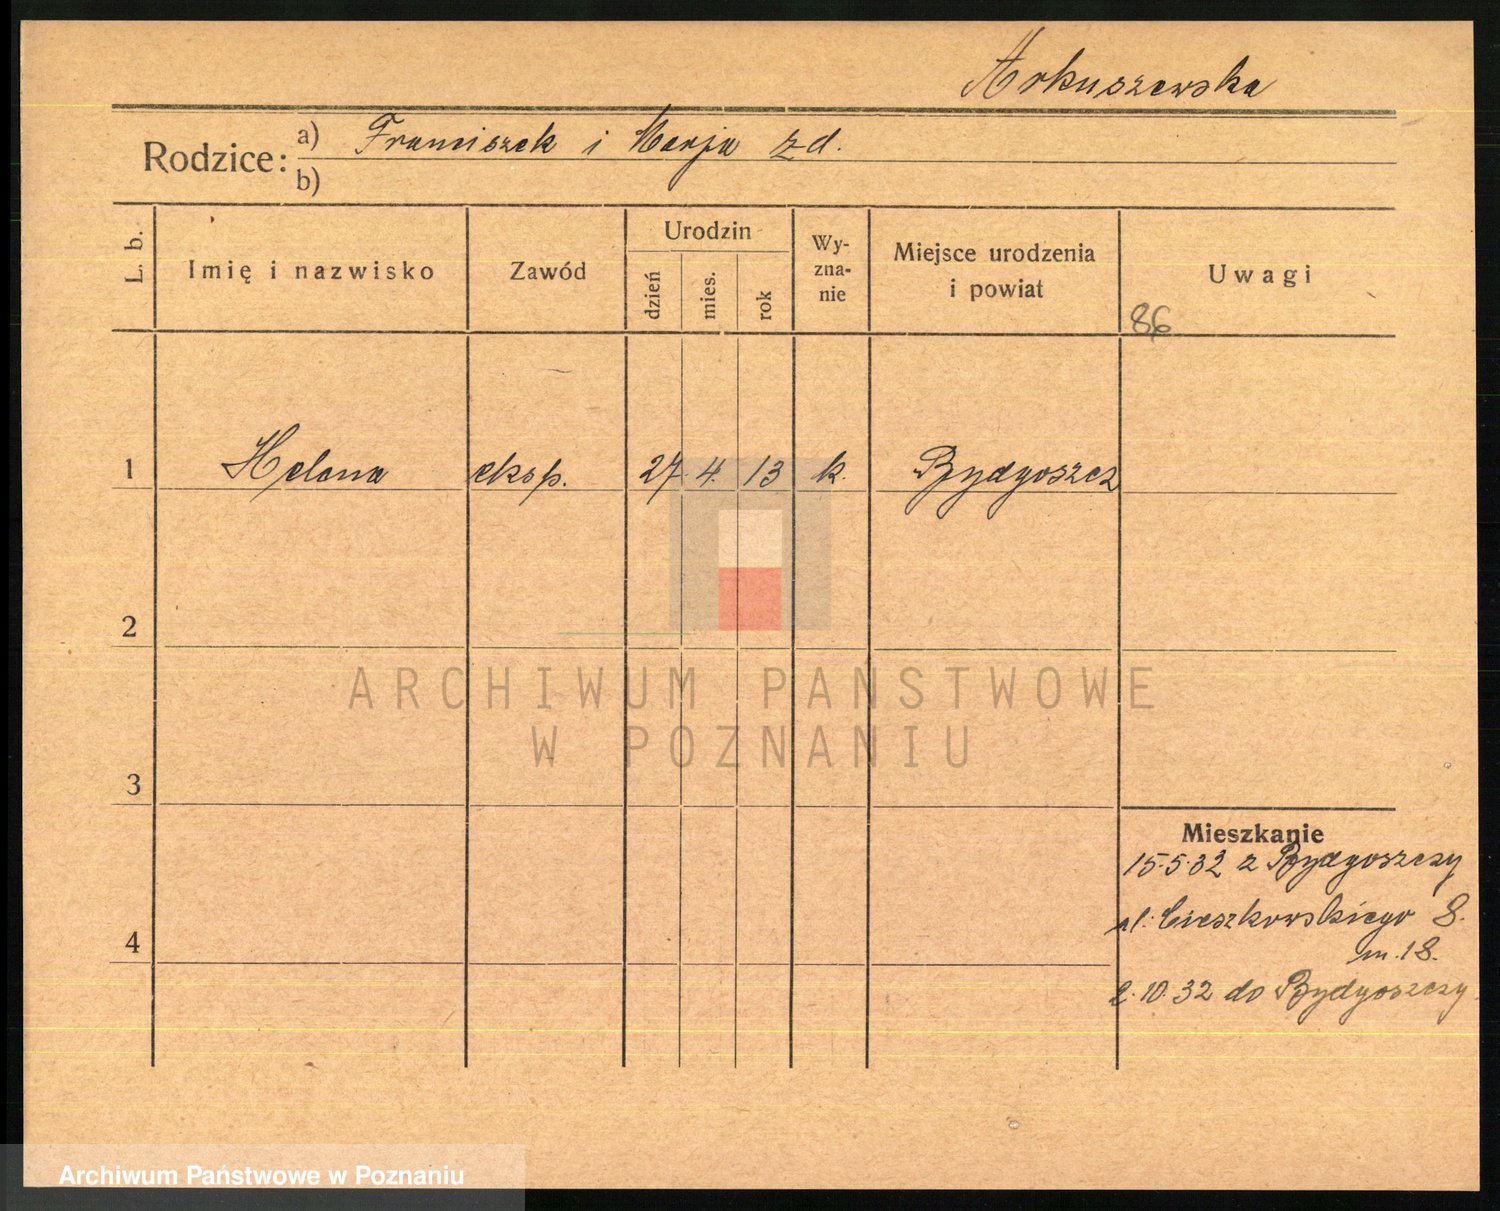 Arkuszewska
Rodzice: a) Franciszek i Marja zd.
b)
L. b. Imię i nazwisko Zawód Urodzin dzień mies. rok Wy-zna-nie Miejsce urodzenia i powiat Uwagi
86
1 Helena eksp. 27. 4. 13 k. Bydgoszcz
2
ARCHIWUM PAŃSTWOWE
W POZNANIU
3
Mieszkanie
15.5.32 z Bydgoszczy
ul. Cieszkowskiego 8.
m. 18.
4
2.10.32 do Bydgoszczy
Archiwum Państwowe w Poznaniu